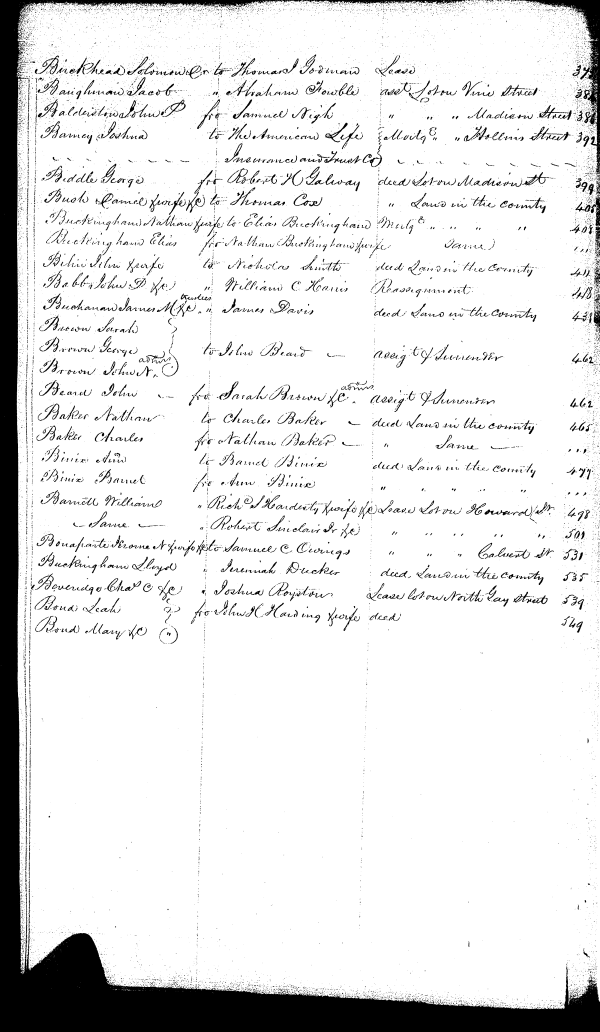 Birckhead Solomon Cr to Thomas I Godman Lease
Baughman Jacob " Abraham asst Lot on Vine Street
Balderston John P fro Samuel High " " " Madison Street 386
Barney Joshua to The American Life Mortge " " Hollins Street 392
Insurance and Trust Co
Biddle George fro Robert H Galway deed Lot on Madison St 399
Bush &wife &C to Thomas Cox " Lans in the county 405
Buckingham Nathan &wife to Elias Buckingham Mortge " " " " 408
Buckingham Elias fro Nathan Buckingham &wife Same "
John &wife to Nicholas Smith deed Lans in the County 411
Babb John D &C " William C Harris Reassignment 418
Buchanan James M &C trustees " James Davis deed Lans in the County
Brown Sarah
Brown George to John Beard — assigt & Surrender 462
Brown John N. admrs
Beard John — fro Sarah Brown &C. admrs assigt & Surrender 462
Baker Nathan to Charles Baker — deed Lans in the county 465
Baker Charles fro Nathan Baker — " Same — "
Binix Ann to Barnel Binix deed Lans in the county 477
Binix Barnel fro Ann Binix " " " " "
Barnett William " Richd S Hardesty &wife &C Lease Lot on Howard St. 498
— Same — " Robert Sinclair Jr &C " " " " " 501
Bonaparte Jerome N &wife &C to Samuel C Owings " " " Calvert St 531
Buckingham Lloyd " Jeremiah Ducker deed Lans in the county 535
Beveridge Chas C &C " Joshua Royston Lease lot on North Gay Street 539
Bond Leah fro John H Harding &wife deed 549
Bond Mary &C "